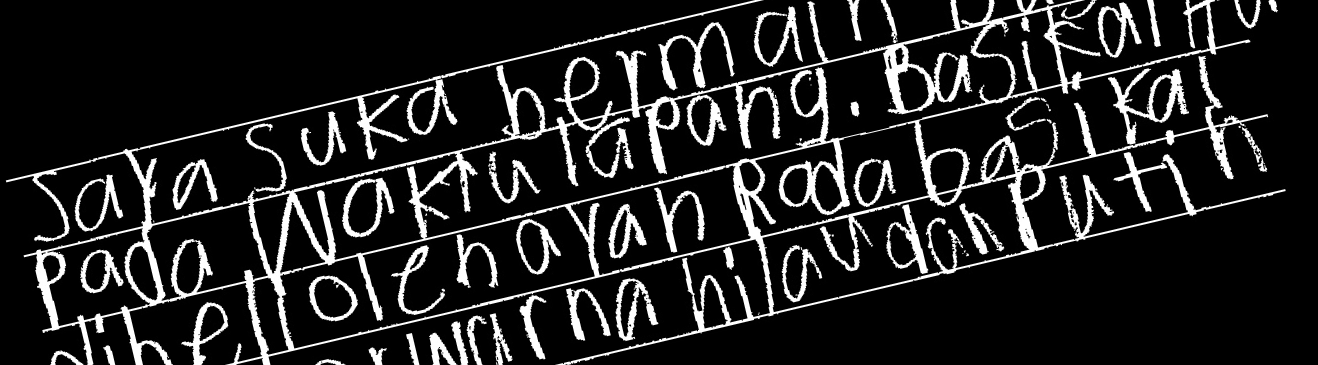 Saya Suka bermain
Pada Waktu lapang. Basikal itu
dibeli oleh ayah Pada basikal
berwarna hilau dan Putih